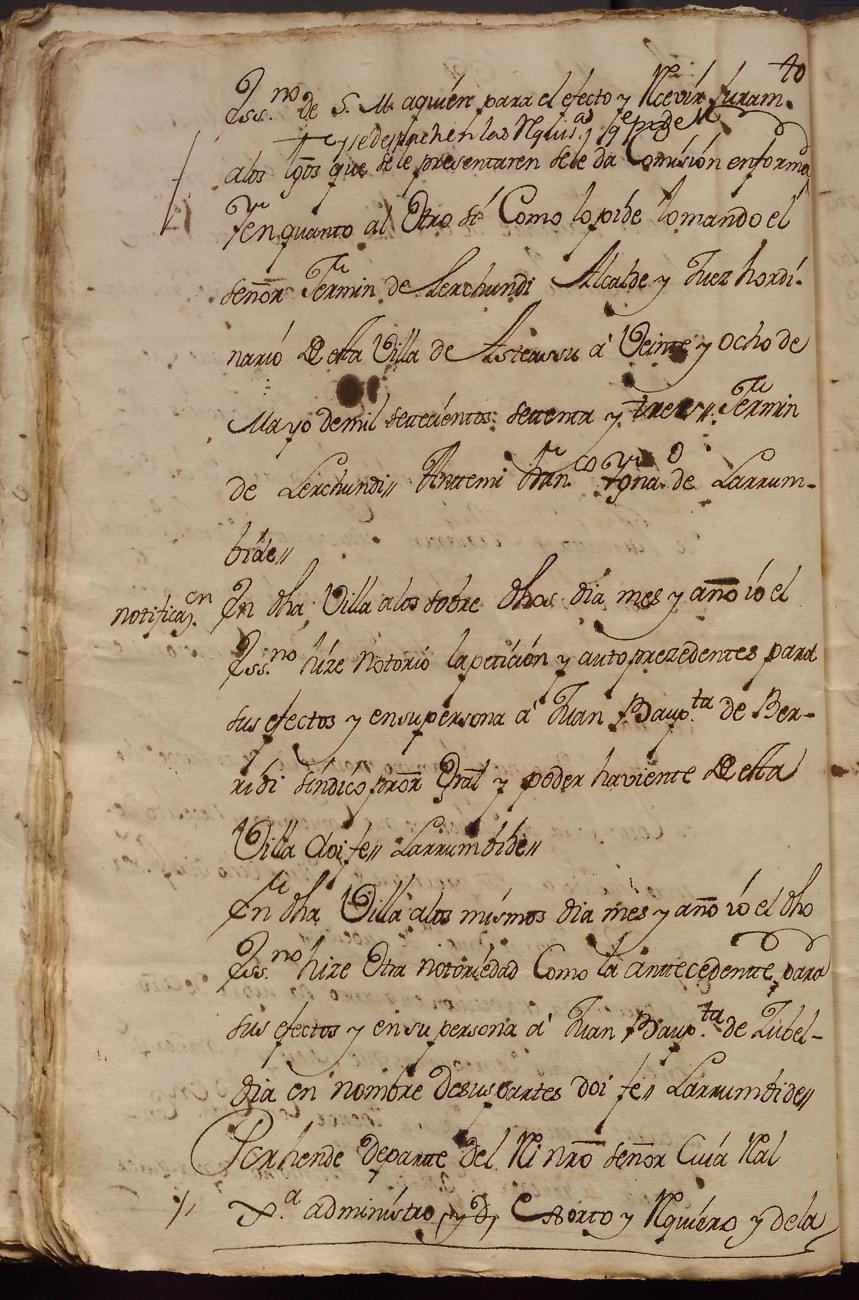 40
Ess.no de S. M. aquien para el efecto y Rcevir Juram.
y se despachen las Rquis.as
alos tgos que sele presentaren sele da Comision enforma
Yen quanto al Otro si Como lopide lo mando el
señor Fermin de Lerchundi Alcalde y Juez hordi-
nario Desta Villa de Asteassu a Veinte y Ocho de
Mayo demil setecientos setenta y tres,, Fermin
de Lerchundi,, Anttemi Fran.co Ygn.o de Larrum-
bide,,
notificaz.on En dha Villa alos sobre dhos dia mes y año io el
Ess.no hize notorio lapeticion y auto prezedentes para
sus efectos y ensupersona a Juan Baup.ta de Ber-
ridi sindico pror Gral y poder haviente Desta
Villa doi fe,, Larrumbide,,
En dha Villa alos mismos dia mes y año io el dho
Ess.no hize Otra notoriedad Como la anttecedente para
sus efectos y ensu persona a Juan Baup.ta de Zubel-
dia en nombre desus partes doi fe,, Larrumbide,,
Por hende departe del Ri nro señor Cuia Ral
Xª administro, y D, Esorto y Rquiero y dela